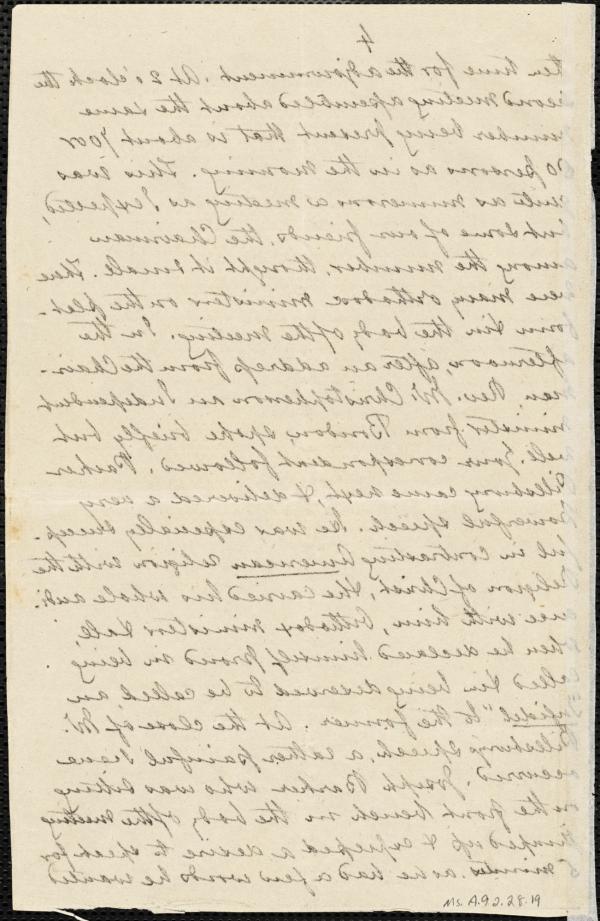 4
ten time for the adjournment. At 2 o'clock the
second meeting assembled about the same
number being present that is about 70 or
80 persons as in the morning. This was
quite as numerous a meeting as I expected,
but some of our friends, the Chairman
among the number, thought it small. There
were many orthodox ministers on the plat-
form & in the body of the meeting. In the
afternoon, after an address from the Chair-
man Rev. Mr. Christopherson an Independent
minister from spoke briefly but
well. Your correspondent followed. Parker
Pillsbury came next, & delivered a very
powerful speech. He was especially
in contrasting American religion with the
religion of Christ, & he carried his whole audi-
ence with him, Orthodox ministers & all,
when he declared himself proud in being
called & in being deserved to be called, an
"infidel" to the former. At the close of Mr.
Pillsbury's speech, a rather painful scene
occurred. Joseph Barker who was sitting
on the front bench in the body of the meeting
jumped up & expressed a desire to speak for
5 minutes as he had a few words he wanted
Ms. A.9.2.28.19